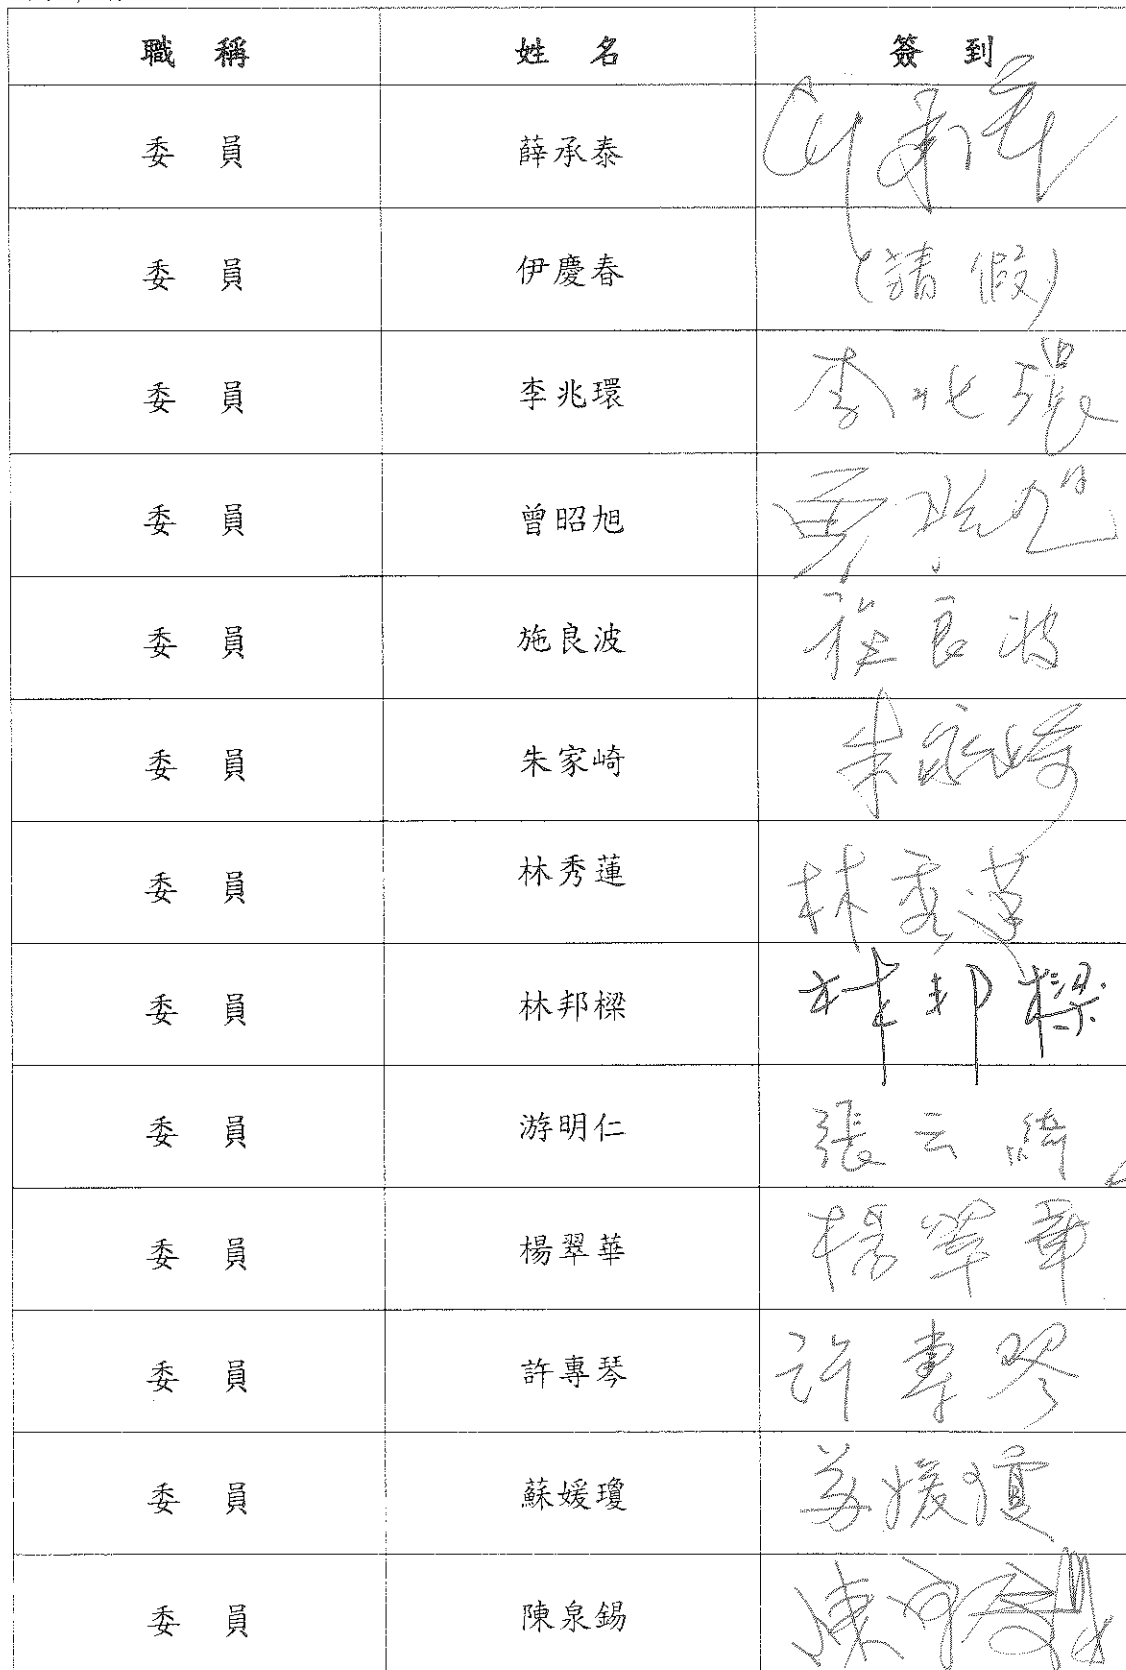 職稱 姓名 簽到
委員 薛承泰
委員 伊慶春 (請假)
委員 李兆環 李兆環
委員 曾昭旭
委員 施良波 施良波
委員 朱家崎 朱家崎
委員 林秀蓮 林秀蓮
委員 林邦樑 林邦樑
委員 游明仁 張云綺
委員 楊翠華 楊翠華
委員 許專琴 許專琴
委員 蘇媛瓊 蘇媛瓊
委員 陳泉錫